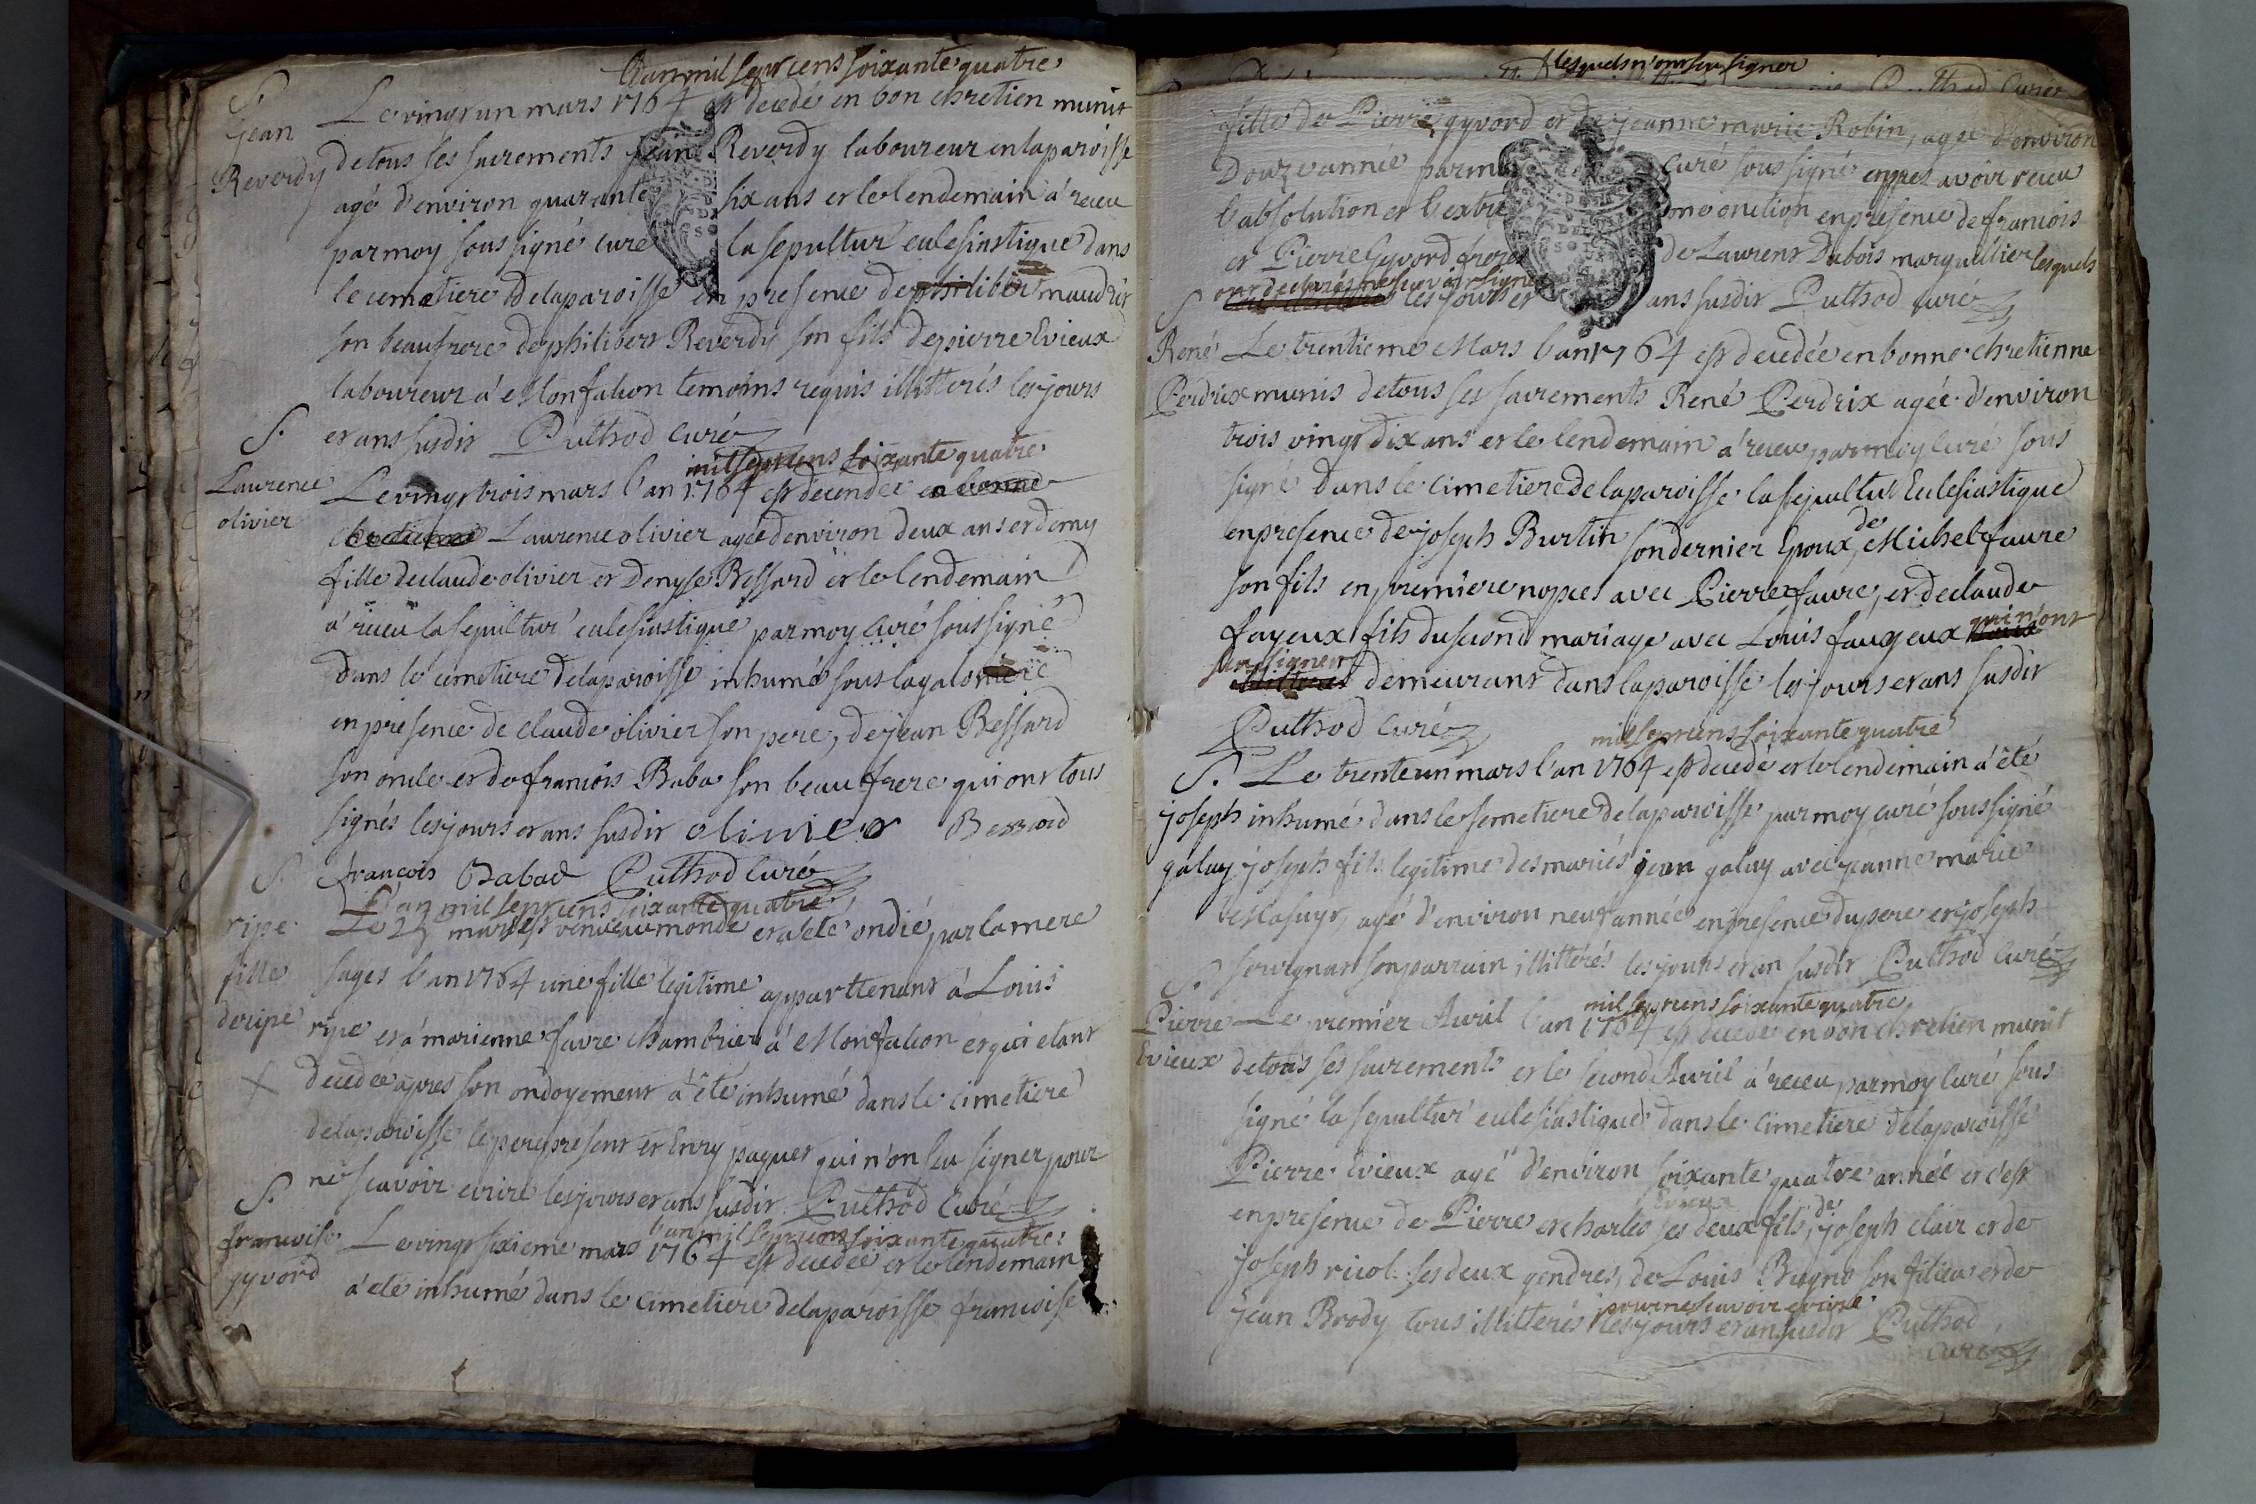 L'an mil sept cens soixante quatre
S. Le vingt un mars 1764 est decedé en bon chretien munit
Jean
Reverdy
de tous ses sacrements jean Reverdy laboureur en la paroisse
agé d'environ quarante six ans et le lendemain a' receu
par moy sous signé curé la sepultur' eclesiastique dans
le cemetiere de la paroisse en presence de philibert maudrir
son beaufrere de philibert Reverdy son fils de pierre Evieux
laboureur a' Monfalcon temoins requis illitterés les jours
et ans susdit Puthod Curé
mil sept cens soixante quatre
S.
Laurence
olivier
Le vingt trois mars l'an 1764 est decendee en bonne
chretienne Laurence olivier agée denviron deux ans et demy
fille de claude olivier et Denyse Bessard et le lendemain
a' receu la sepultur' eclesiastique par moy Curé sous signé
dans le cemetiere de la paroisse inhumé sous la galoniere
en presence de claude olivier son pere, de jean Bessard
son oncle et de francois Baba son beau frere qui ont tous
signés les jours et ans susdit olivier Bessard
francois Babad Puthod Curé
S.
L'an mil sept cens soixante quatre
ripe
fille
de ripe
X
Le 25 mars est venue au monde et a été ondié par la mere
sages l'an 1764 une fille legitime appartenant à Louis
ripe et a' marienne favre chambrier a' Monfalcon et qui etant
decedee apres son ondoyement a' été inhumé dans le cimetiere
de la paroisse le pere present et Enry paquet qui n'on seu signer pour
ne scavoir ecrire les jours et ans susdit. Puthod Curé
l'an mil sept cens soixante quatre
S.
francoise
gyvord
Le vingt sixieme mars 1764 est decedée et le lendemain
a' eté inhumé dans le cimetiere de la paroisse francoise
lesquels n'ont seu signer
fille de Pierre gyvord et de jeanne marie Robin, agée d'environ
Douze année par moy curé sous signé enpres avoir receu
l'absolution et l'extreme onction en presence de francois
et Pierre Gyvord freres de Laurent Dubois marguillier lesquels
ont declarés ne scavoir signer les jours et ans susdit Puthod curé
S.
René
Perdrix
Le trentieme Mars l'an 1764 est decedée en bonne chretienne
munis de tous ses sacrements René Perdrix agée d'environ
trois vingt dix ans et le lendemain a' receu par moy Curé sous
signé dans le cimetiere de la paroisse la sepultur Eclesiastique
en presence de joseph Burtin son dernier Epoux, de Michel faure
son fils en premiere nopces avec Pierre faure, et de claude
fayeux fils du second mariage avec Louis faugeux qui n'ont
seu signer demeurant dans la paroisse les jours et ans susdit
Puthod Curé
mil sept cens soixante quatre
S. Le trente un mars l'an 1764 est decedé et le lendemain a' été
joseph
galay
inhumé dans le semetiere de la paroisse par moy curé sous signé
joseph fils legitime des mariés jean galay avec jeanne marie
agé d'environ neuf année en presence du pere et joseph
servignat son parrain illittérés les jours et an susdit Puthod Curé
S.
mil sept cens soixante quatre
Pierre
Evieux
Le premier Avril l'an 1764 est decedé en bon chretien munit
de tous ses sacrements et le second Avril a' receu par moy Curé sous
signé la sepultur' eclesiastique dans le cimetiere de la paroisse
Pierre Evieux agé d'environ soixante quatre année et c'est
en presence de Pierre et charles Evieux ses deux fils, de joseph clair et de
joseph ricol ses deux gendres, de Louis Brogno son filieu et de
jean Brody tous illitterés pour ne scavoir ecrire les jours et an susdit Puthod
Curé